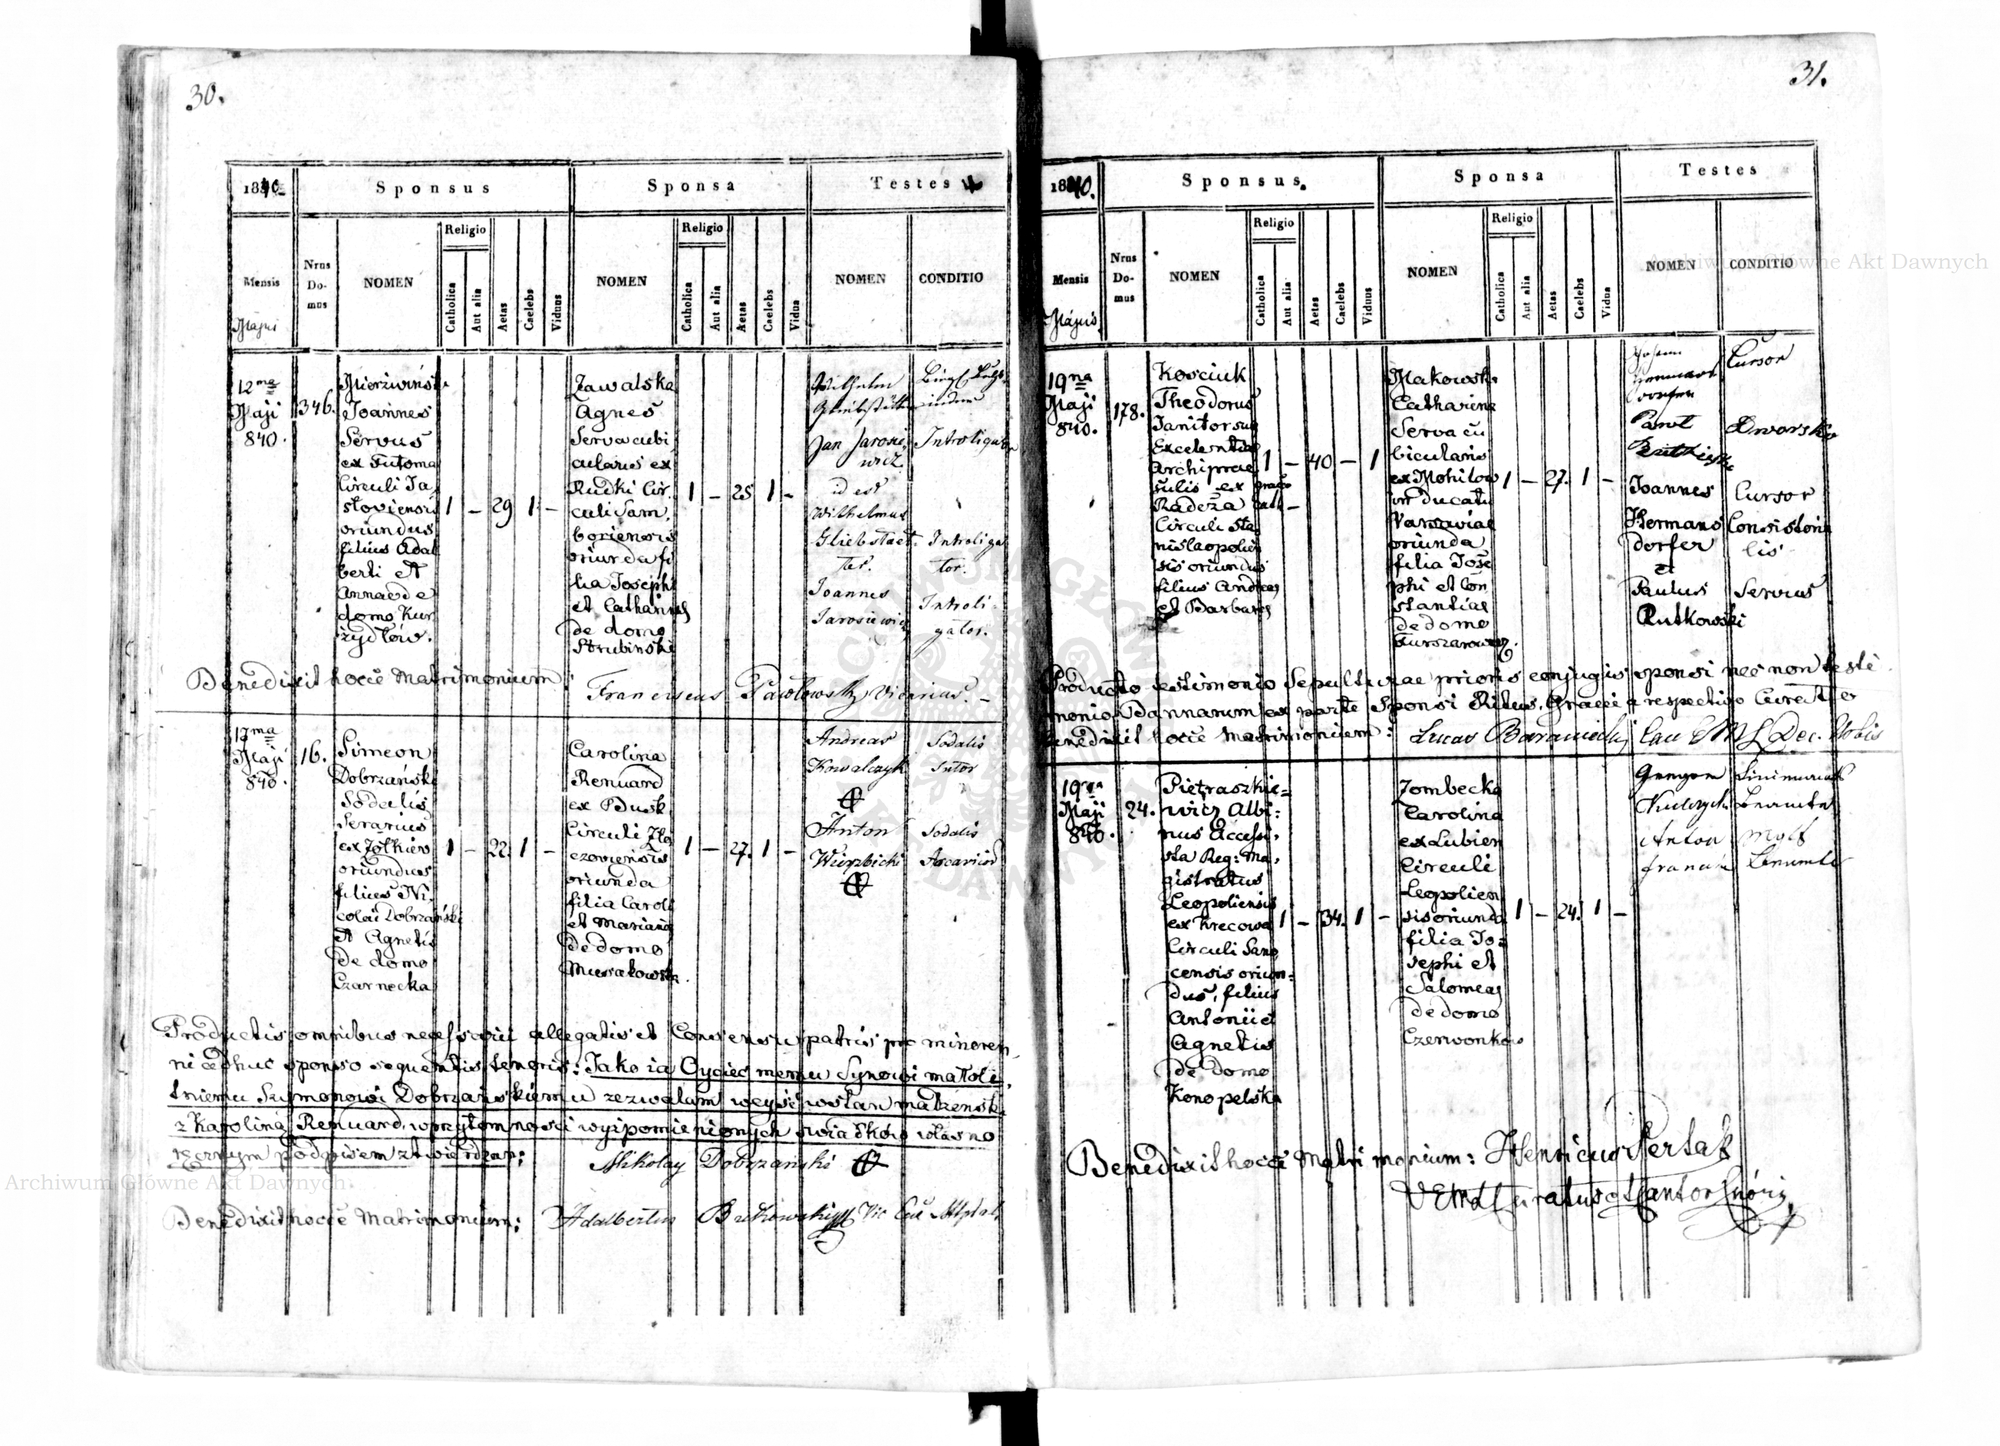 30.
1840
Sponsus
Sponsa
Testes
Mensis
Majus
Nrus
Do-
mus
NOMEN
Religio
Catholica
Aut alia
Aetas
Caelebs
Viduus
NOMEN
Religio
Catholica
Aut alia
Aetas
Caelebs
Vidua
NOMEN
CONDITIO
12ma
Maji
840.
346.
Joannes
Servus
ex Futoma
Circuli Ja
sloviensis
oriundus
filius Adal
berti et
Anna de
domo Kur
zydłów.
1 – 29 1 –
Zawalska
Agnes
Serva cubi
cularus ex
Rudki Cir.
culi Sam.
boriensis
oriunda fi
lia Josephi
et Catharinae
de domo
Strubinski
1 – 25 1 –
Wilhelm
Jan Jarosie
wicz
Introligator
id est
Wilhelmus
Gliebstaet
ter.
Introliga
tor.
Joannes
Jarosiewicz
Introli
gator.
Benedixit hocce Matrimonium
Franciscus Pawlowski Vicarius. –
17ma
Maji
840.
16.
Simeon
Dobrzański
Sodalis
Serarius
ex Żołkiew
oriundus
filius Ni
colai Dobrzański
et Agnetis
de domo
Czarnecka
1 – 22. 1 –
Carolina
Renuard
ex Busk
Circuli Zlo
czoviensis
oriunda
filia Caroli
et Mariana
de domo
1 – 27. 1 –
Andreas
Kowalczyk
Sodalis
Sutor
Anton
Wierzbicki
Sodalis
Productis omnibus necessariis allegatis et Consensu patris pro minoren
ni adhuc sponso sequentis tenoris: Jako ia Oyciec memu Synowi małole
tniemu Szymonowi Dobrzańskiemu zezwalam weyść w stan małżenski
z Karoliną Renuard, w przytomności wyż pomienionych świadków własno
ręcznym podpisem ztwierdzam;
Mikolay Dobrzański
Benedixit hocce Matrimonium;
Adalbertus
31.
1840.
Sponsus
Sponsa
Testes
Mensis
Majus
Nrus
Do-
mus
NOMEN
Religio
Catholica
Aut alia
Aetas
Caelebs
Viduus
NOMEN
Religio
Catholica
Aut alia
Aetas
Caelebs
Vidua
NOMEN
CONDITIO
19na
Maji
840.
178.
Kosciuk
Theodorus
Janitor suae
Excelentiae
Archiprae
sulis ex
Radcza
Circuli Sta
nislaopolien
sis oriundus
filius Andreae
et Barbarae
1 – 40 – 1
graeco
cath –
Makowska
Catharina
Serva cu
bicularis
ex Mohilow
in Ducatu
Varsaviae
oriunda
filia Jose
phi et Con
stantiae
de domo
1 – 27. 1 –
Johann
Cursor
Joannes
Hermans
dorfer
Cursor
Consistoria
lis
et
Paulus
Rutkowski
Servus
Producto testimonio Sepulturae prioris conjugis sponsi nec non testi
monio Bannarum ex parte Sponsi Ritus Graeci a respectivo Curatt er
Benedixit hocce Matrimonium:
Lucas Baraniecki
19na
Maji
840.
24.
Pietraszkie=
wicz Albi=
nus Accessi,
sta Reg: Ma,
gistratus
Leopoliensis
ex Krecowa
Circuli Sano
censis oriun=
dus, filius
Antonii et
Agnetis
de domo
Konopelska
1 – 34. 1 –
Zombecka
Carolina
ex Lubien
Circuli
Leopolien
sis oriunda
filia Jo=
sephi et
Salomeae
de domo
1 – 24. 1 –
Anton
Benedixit hocce Matrimonium: Henricus
Archiwum Główne Akt Dawnych
Archiwum Główne Akt Dawnych